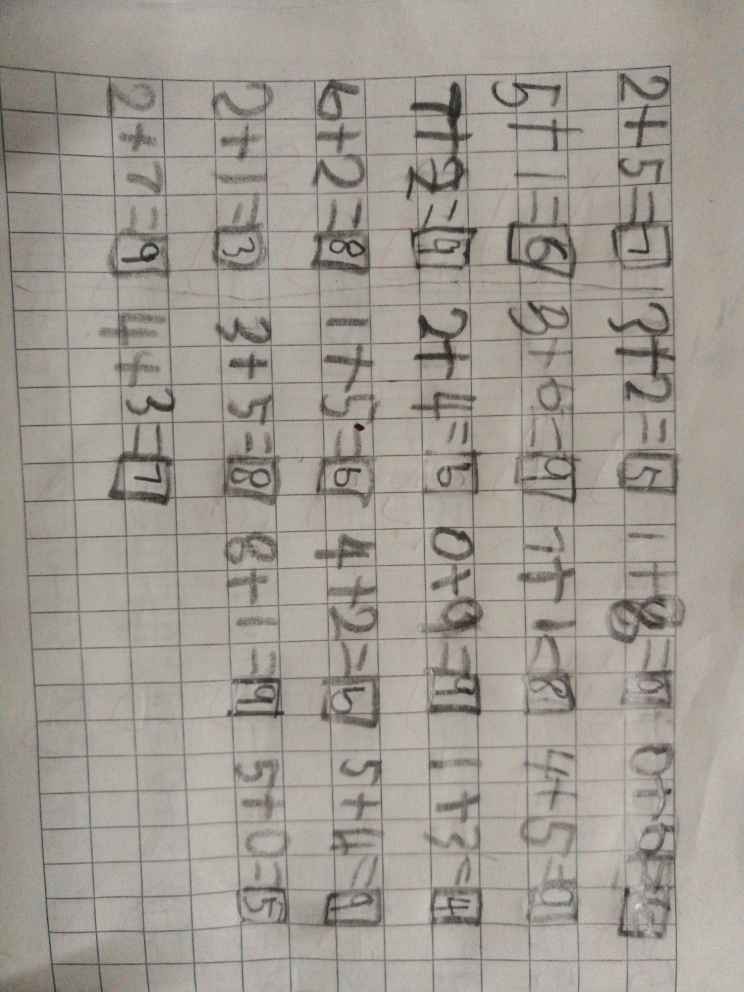 2+5=7 3+2=5 1+8=9 0+6=
5+1=6 3+6=9 7+1=8 4+5=9
7+2=9 2+4=6 0+9=9 1+3=4
6+2=8 1+5=6 4+2=6 5+4=9
2+1=3 3+5=8 8+1=9 5+0=5
2+7=9 4+3=7